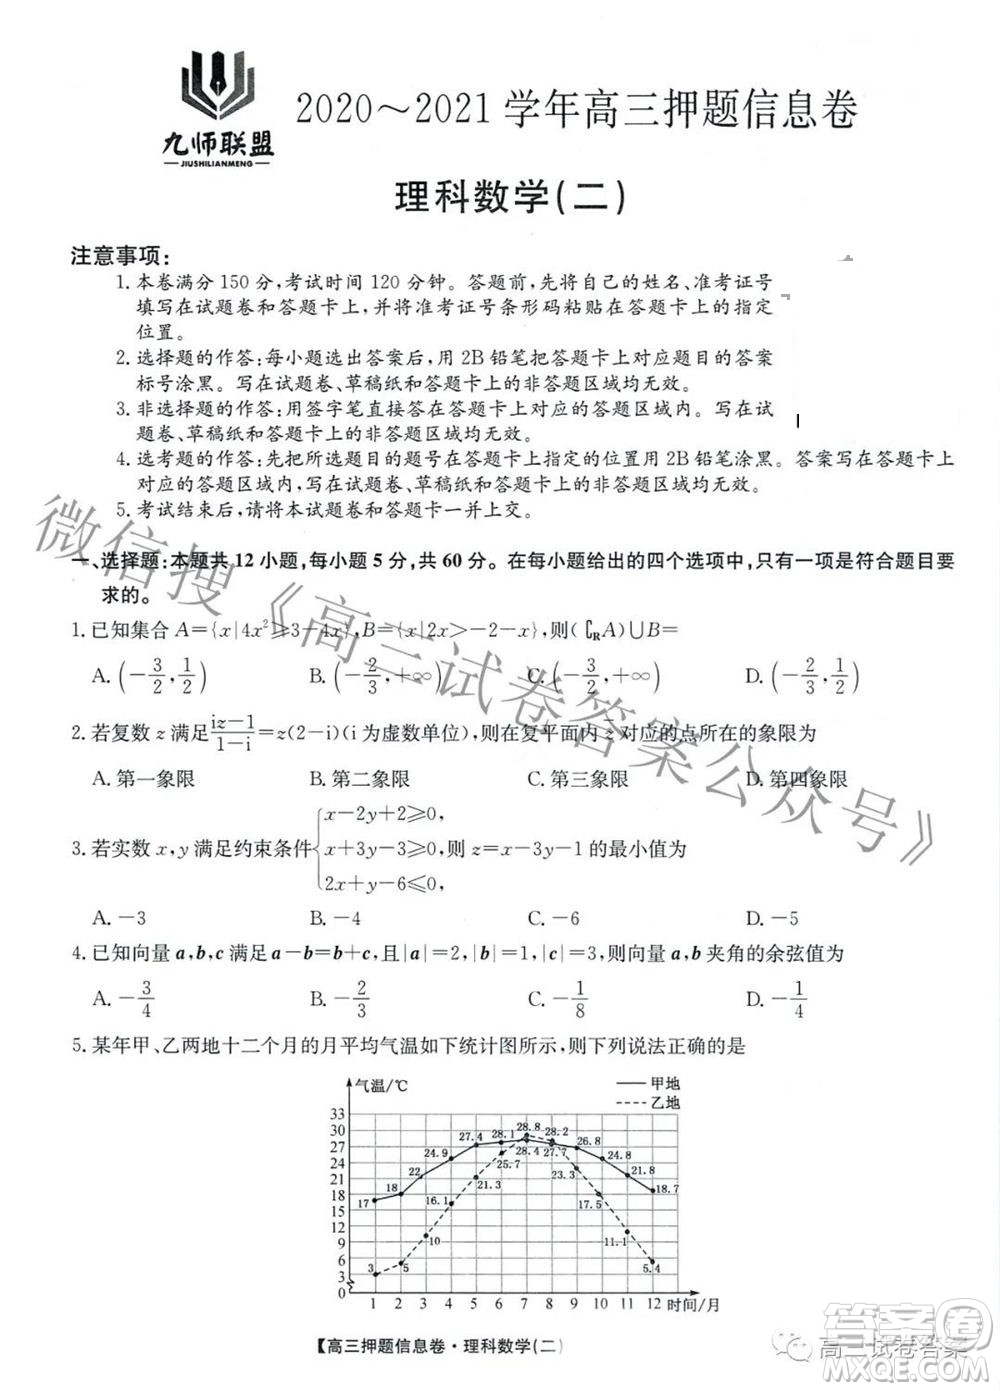 九师联盟
JIUSHILIANMENG
2020～2021学年高三押题信息卷
理科数学(二)
注意事项:
1. 本卷满分150分,考试时间120分钟。答题前,先将自己的姓名、准考证号
填写在试题卷和答题卡上,并将准考证号条形码粘贴在答题卡上的指定
位置。
2. 选择题的作答:每小题选出答案后,用2B铅笔把答题卡上对应题目的答案
标号涂黑。写在试题卷、草稿纸和答题卡上的非答题区域均无效。
3. 非选择题的作答:用签字笔直接答在答题卡上对应的答题区域内。写在试
题卷、草稿纸和答题卡上的非答题区域均无效。
4. 选考题的作答:先把所选题目的题号在答题卡上指定的位置用2B铅笔涂黑。答案写在答题卡
上对应的答题区域内,写在试题卷、草稿纸和答题卡上的非答题区域均无效。
5. 考试结束后,请将本试题卷和答题卡一并上交。
一、选择题:本题共12小题,每小题5分,共60分。在每小题给出的四个选项中,只有一项是符合题目要
求的。
1. 已知集合A={x|4x²≥3-4x},B={x|2x>-2-x},则(∁RA)∪B=
A. (-3/2,1/2) B. (-2/3,+∞) C. (-3/2,+∞) D. (-2/3,1/2)
2. 若复数z满足(iz-1)/(1-i)=z(2-i)(i为虚数单位),则在复平面内z̄对应的点所在的象限为
A. 第一象限 B. 第二象限 C. 第三象限 D. 第四象限
x-2y+2≥0,
3. 若实数x,y满足约束条件{x+3y-3≥0,则z=x-3y-1的最小值为
2x+y-6≤0,
A. -3 B. -4 C. -6 D. -5
4. 已知向量a,b,c满足a-b=b+c,且|a|=2,|b|=|c|=3,则向量a,b夹角的余弦值为
A. -3/4 B. -2/3 C. -1/8 D. -1/4
5. 某年甲、乙两地十二个月的月平均气温如下统计图所示,则下列说法正确的是
气温/℃
甲地
乙地
33
30
27
24
21
18
15
12
9
6
3
0
17 18 22 24.9 27.4 28.1 28.4 27.7 26.8 24.8 21.8 18.7
3 5 10 16.1 21.3 25.7 28.8 28.2 23.3 17.5 11.1 5.4
1 2 3 4 5 6 7 8 9 10 11 12 时间/月
【高三押题信息卷·理科数学(二)
微信搜《高三试卷答案公众号》
高三试卷答案
答案圈
MXQE.COM